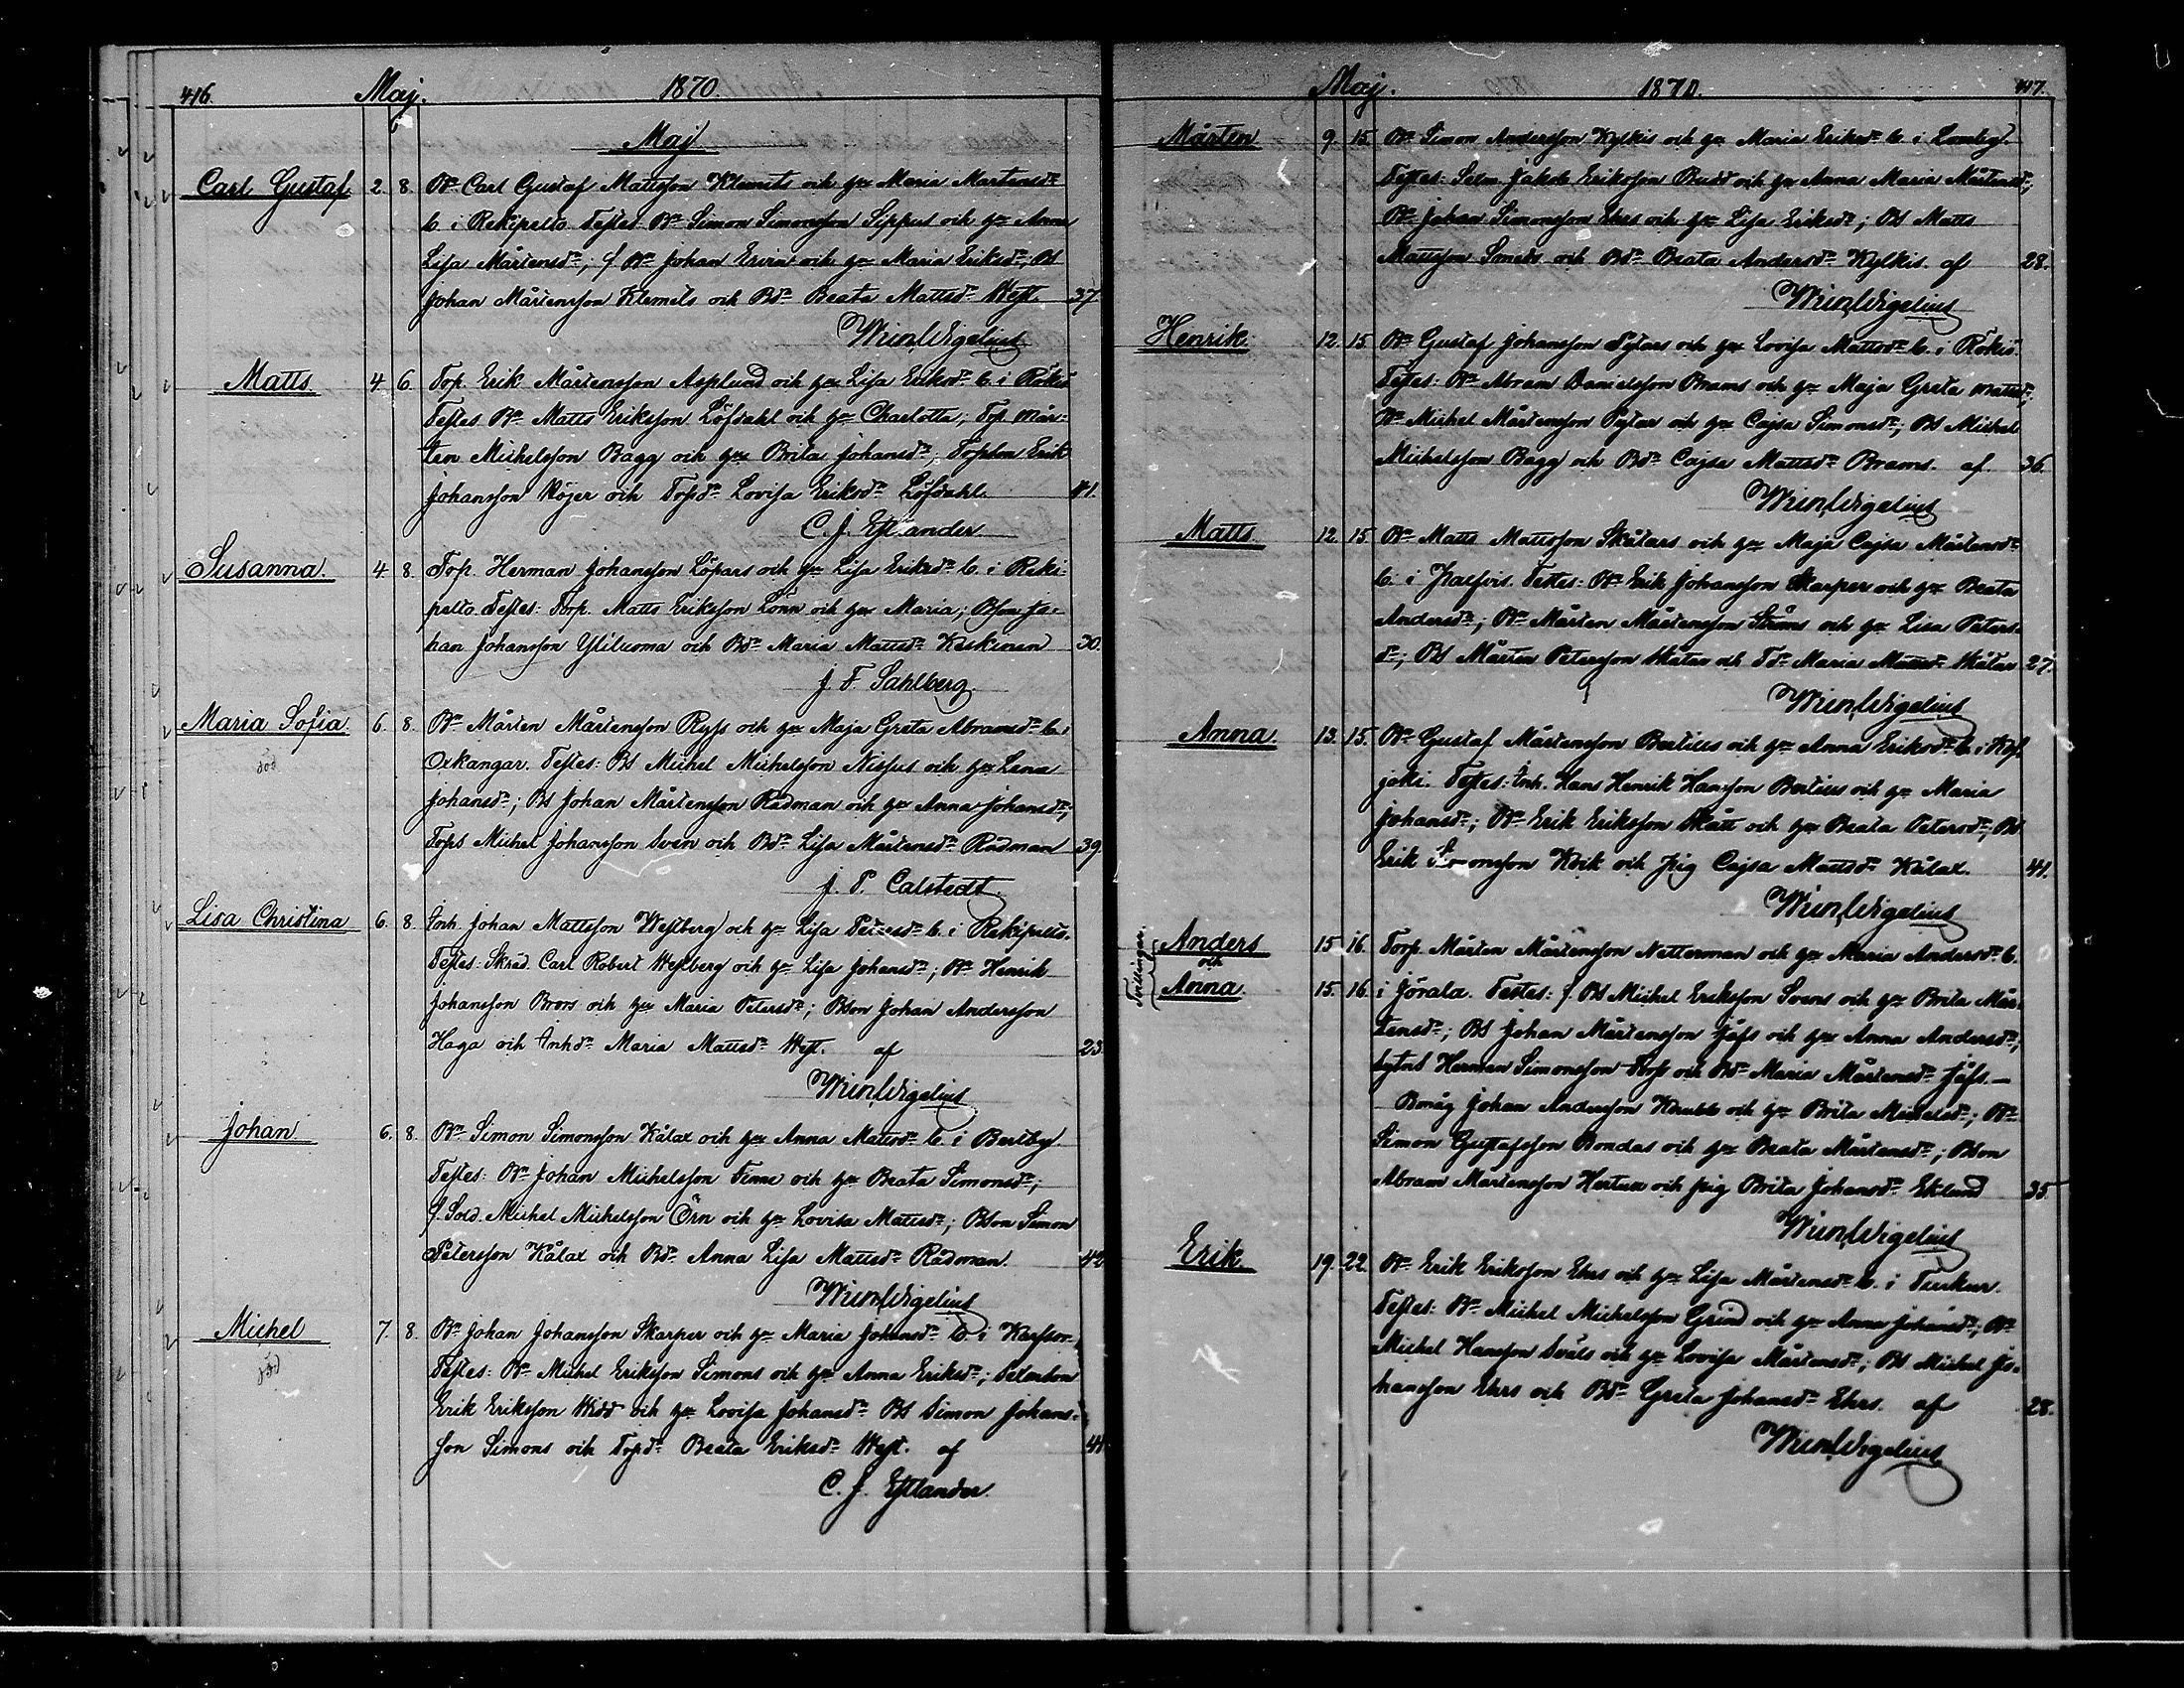 416. Maj. 1870.
Maj
Carl Gustaf 2. 8. Bn Carl Gustaf Mattsson Klemets och hu Maria Mårtensdr
b. i Rekipelto Testes Bn Simon Simonsson Sippus och hu Anna
Lisa Mårtensdr; f Bn Johan Ervia och hu Maria Eriksdr; Bs
Johan Mårtensson Klemets och Bdr Beata Mattsdr West. 37.
Wm Wigelius
Matts 4 6. Torp. Erik Mårtensson Asplund och hu Lisa Eriksdr b. i Rökiö
Testes Bn Matts Eriksson Löfdahl och hu Charlotta; Torp Mår-
ten Michelsson Bagg och hu Brita Johansdr; Torpson Erik
Johansson Röjer och Torpdr Lovisa Eriksdr Löfdahl. 41.
C. J. Estlander
Susanna. 4. 8. Torp. Herman Johansson Löpars och hu Lisa Eriksdr b. i Reki-
pelto. Testes: Torp. Matts Eriksson Lönn och hu Maria; Bson Jo-
han Johansson Ylilucoma och Bdr Maria Mattsdr Keskinen 30.
J. F. Sahlberg.
Maria Sofia. 6. 8. Bn Mårten Mårtensson Ryss och hu Maja Greta Abramsdr b. i
död
Oxkangar. Testes: Bs Michel Michelsson Nissus och hu Lena
Johansdr; Bs Johan Mårtensson Rådman och hu Anna Johansdr;
Torps Michel Johansson Sven och Bdr Lisa Mårtensdr Rådman 39.
J. P. Calstedt.
Lisa Christina 6. 8. Inh. Johan Mattsson Westberg och hu Lisa Petersdr b. i Rekipelto.
Testes: Skräd. Carl Robert Westberg och hu Lisa Johansdr; Bn Henrik
Johansson Brors och hu Maria Petersdr; Bson Johan Andersson
Haga och Inhdr Maria Mattsdr West. af 23.
Wm Wigelius
Johan 6. 8. Bn Simon Simonsson Kålax och hu Anna Mattsdr b. i Bertby
Testes: Bn Johan Michelsson Finne och hu Beata Simonsdr;
f. Sold. Michel Michelsson Örn och hu Lovisa Mattsdr; Bson Simon
Petersson Kålax och Bdr Anna Lisa Mattsdr Rådman. 42
Wm Wigelius
Michel 7. 8. Bn Johan Johansson Skarper och hu Maria Johansdr b. i Karfsor.
död
Testes: Bn Michel Eriksson Simons och hu Anna Eriksdr;
Erik Eriksson Widd och hu Lovisa Johansdr Bs Simon Johans-
son Simons och Torpdr Beata Eriksdr West. af 41
C. J. Estlander.
Maj. 1870. 417.
Mårten 9. 15. Bn Simon Andersson Kylkis och hu Maria Eriksdr b. i Lomby.
Testes: Jakob Eriksson Budd och hu Anna Maria Mårtensdr;
Bn Johan Simonsson Ehrs och hu Lisa Eriksdr; Bs Matts
Mattsson Smeds och Bdr Beata Andersdr Kylkis. af 28.
Wm Wigelius
Henrik. 12. 15. Bn Gustaf Johansson Pytars och hu Lovisa Mattsdr b. i Rökiö.
Testes: Bn Abram Danielsson Brams och hu Maja Greta Mattsdr;
Bn Michel Mårtensson Pytar och hu Cajsa Simonsdr; Bs Michel
Michelsson Bagg och Bdr Cajsa Mattsdr Brams. af 36.
Wm Wigelius
Matts 12. 15. Bn Matts Mattsson Skåtars och hu Maja Cajsa Mårtensdr
b. i Kaefvis. Testes: Bn Erik Johansson Skarper och hu Beata
Andersdr; Bn Mårten Mårtensson Ströms och hu Lisa Peters-
dr; Bs Mårten Petersson Skåtar och Maria Mattsdr Skåtar 27.
Wm Wigelius
Anna 13. 15. Bn Gustaf Mårtensson Bertills och hu Anna Eriksdr b. i Kos-
joki. Testes: Inh. Hans Henrik Hansson Bertills och hu Maria
Johansdr; Bn Erik Eriksson Skatt och hu Beata Petersdr; Bs
Erik Simonsson Kvik och pig Cajsa Mattsdr Kålax. 41.
Wm Wigelius
Tvillingar.
Anders 15 16. Torp. Mårten Mårtensson Netterman och hu Maria Andersdr b.
och
Anna. 15. 16. i Jörala. Testes: f. Bs Michel Eriksson Svens och hu Brita Mår-
tensdr; Bs Johan Mårtensson Jåfs och hu Anna Andersdr;
Herman Simonsson Torp och Bdr Maria Mårtensdr Jåfs. —
Bmåg Johan Andersson Knubb och hu Brita Michelsdr; Bn
Simon Gustafsson Bondas och hu Beata Mårtensdr; Bson
Abram Mårtensson Hertux och pig Brita Johansdr Eklund 35.
Wm Wigelius
Erik 19. 22. Bn Erik Eriksson Ehrs och hu Lisa Mårtensdr b. i Tuckur.
Testes: Bn Michel Michelsson Grind och hu Anna Johansdr; Bn
Michel Hansson Svåls och hu Lovisa Mårtensdr; Bs Michel Jo-
hansson Ehrs och Bdr Greta Johansdr Ehrs. af 28.
Wm Wigelius